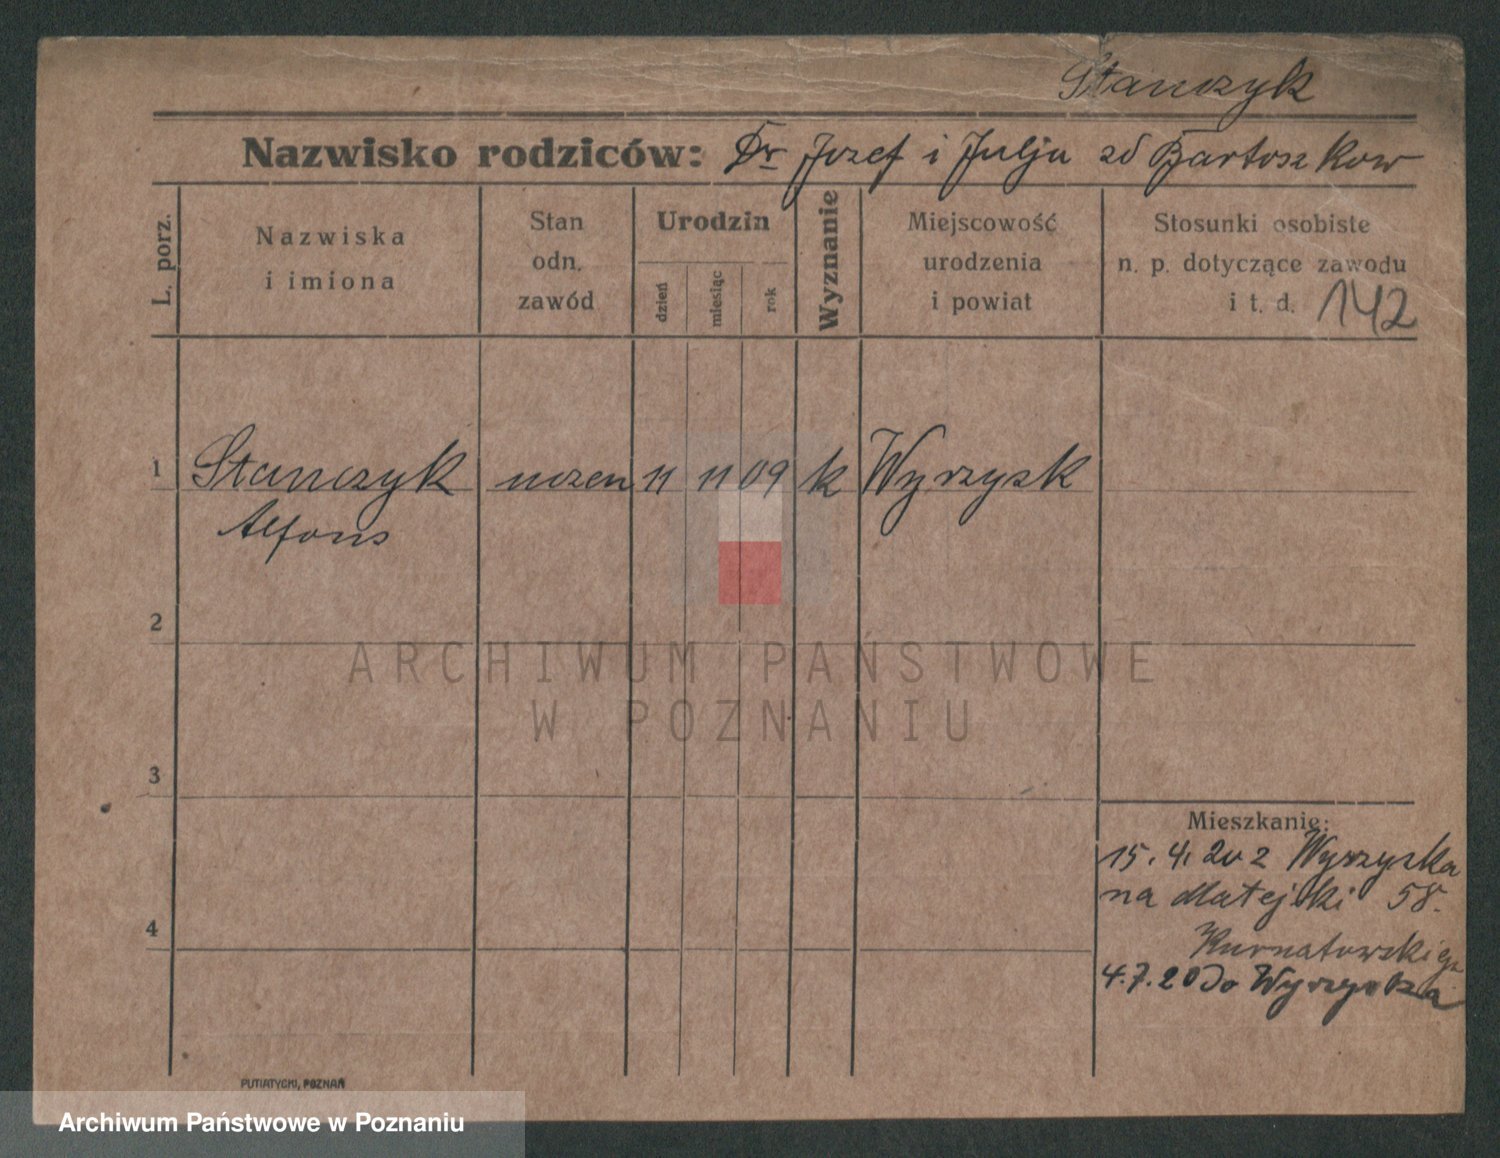 Stanczyk
Nazwisko rodziców: Dr Jozef i Julja zd Bartoszkow
L. porz.
Nazwiska
i imiona
Stan
odn.
zawód
Urodzin
dzień
miesiąc
rok
Wyznanie
Miejscowość
urodzenia
i powiat
Stosunki osobiste
n. p. dotyczące zawodu
i t. d. 142
1 Stanczyk uczen 11 11 09 k Wyrzysk
Alfons
2
ARCHIWUM PAŃSTWOWE
W POZNANIU
3
Mieszkanie:
15. 4. 20 z Wyrzyska
na Matejki 58.
4
Kurnatowskiego
4.7.20 do Wyrzyska
PUTIATYCKI, POZNAŃ
Archiwum Państwowe w Poznaniu